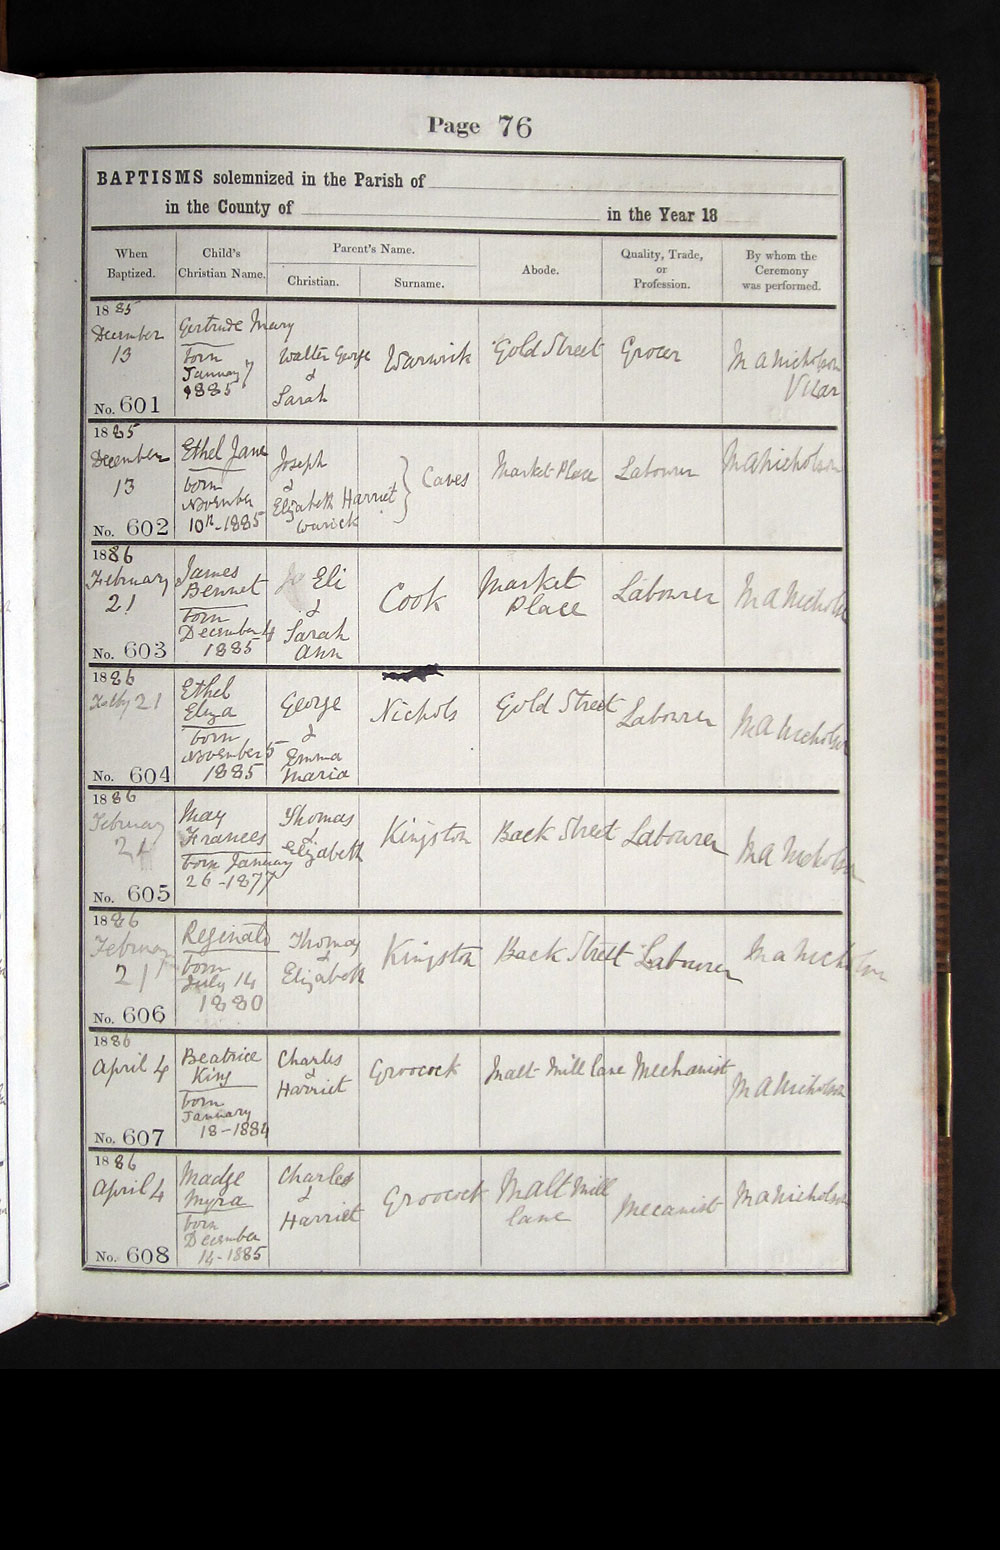 Page 76
BAPTISMS solemnized in the Parish of
in the County of in the Year 18
When Baptized.
Child's Christian Name.
Parent's Name.
Christian.
Surname.
Abode.
Quality, Trade, or Profession.
By whom the Ceremony was performed.
1885
December
13
No. 601
Gertrude Mary
born
January 7
1885
Walter George
&
Sarah
Warwick
Gold Street
Grocer
M A Nicholson
Vicar
1885
December
13
No. 602
Ethel Jane
born
November
10th - 1885
Joseph
&
Elizabeth Harriet
Warick
Caves
Market Place
Labourer
M A Nicholson
1886
February
21
No. 603
James
Bennet
born
December 4
1885
Eli
&
Sarah
Ann
Cook
Market
Place
Labourer
M A Nicholson
1886
21
No. 604
Ethel
Eliza
born
November 5
1885
George
&
Emma
Maria
Nichols
Gold Street
Labourer
M A Nicholson
1886
February
21
No. 605
May
Frances
born January
26 - 1877
Thomas
&
Elizabeth
Kingston
Back Street
Labourer
M A Nicholson
1886
February
21
No. 606
Reginald
born
July 14
1880
Thomas
&
Elizabeth
Kingston
Back Street
Labourer
M A Nicholson
1886
April 4
No. 607
Beatrice
King
born
January
18 - 1884
Charles
&
Harriet
Groocock
Malt Mill lane
Mechanist
M A Nicholson
1886
April 4
No. 608
Madge
Myra
born
December
14 - 1885
Charles
&
Harriet
Groocock
Malt Mill
lane
Mecanist
M A Nicholson